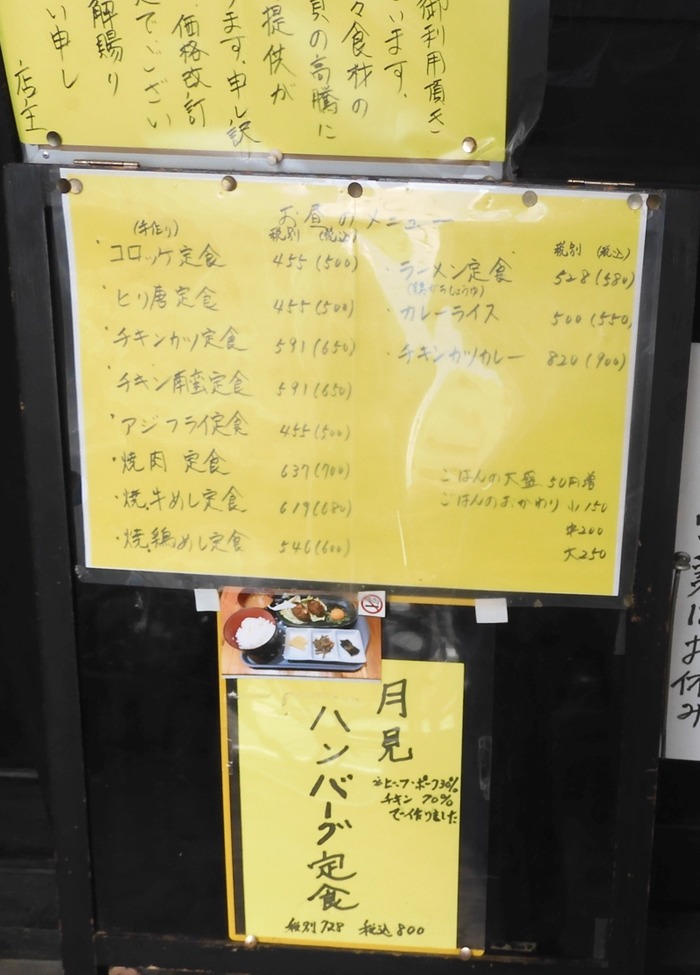 御利用頂き
います。
々食材の
高騰に
提供が
ます。申し訳
価格改訂
でござい
解賜り
い申し
店主
お昼のメニュー
(手作り) 税別 (税込)
コロッケ定食 455(500)
とり唐定食 455(500)
チキンカツ定食 591(650)
チキン南蛮定食 591(650)
アジフライ定食 455(500)
焼肉 定食 637(700)
焼牛めし定食 619(680)
焼鶏めし定食 546(600)
税別 (税込)
ラーメン定食 528(580)
カレーライス 500(550)
チキンカツカレー 820(900)
ごはんの大盛 50円増
ごはんのおかわり 小150
中200
大250
月見
ハンバーグ定食
※ビーフ・ポーク30%
チキン 70%
で作りました
税別728 税込800
にお休み